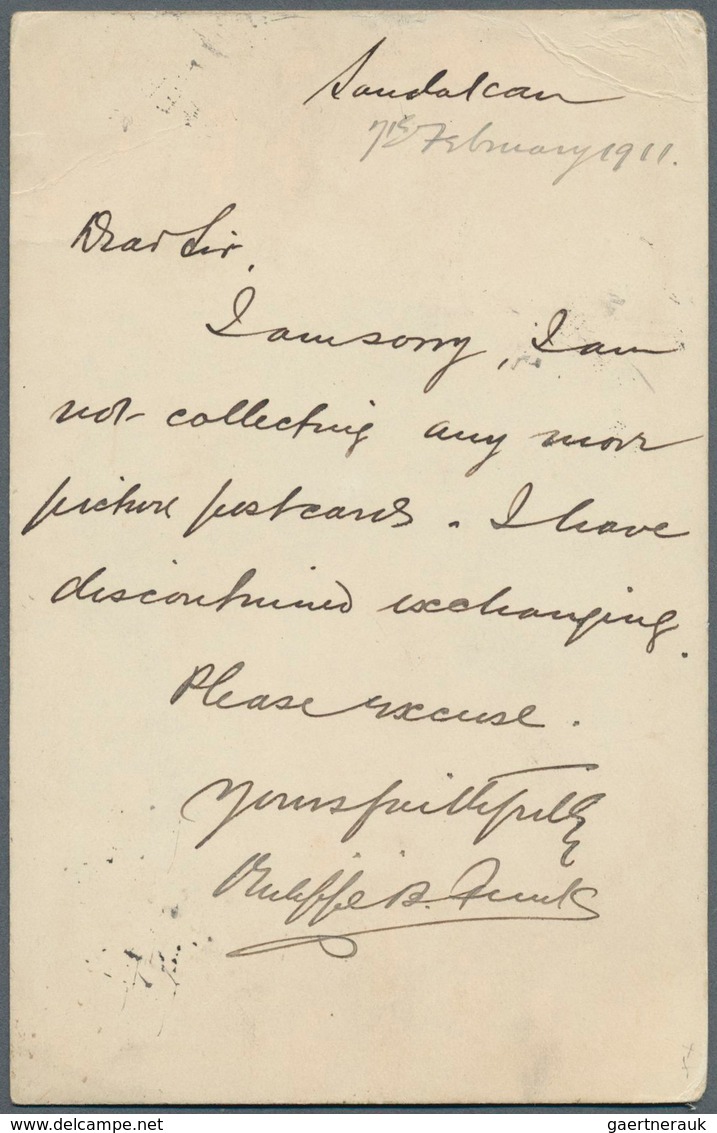 Sandakan
7th February 1911.
Dear Sir,
I am sorry, I am
not collecting any more
picture postcards. I have
discontinued exchanging.
Please excuse.
Yours faithfully
B.
DELCAMPE.NET
gaertnerauk